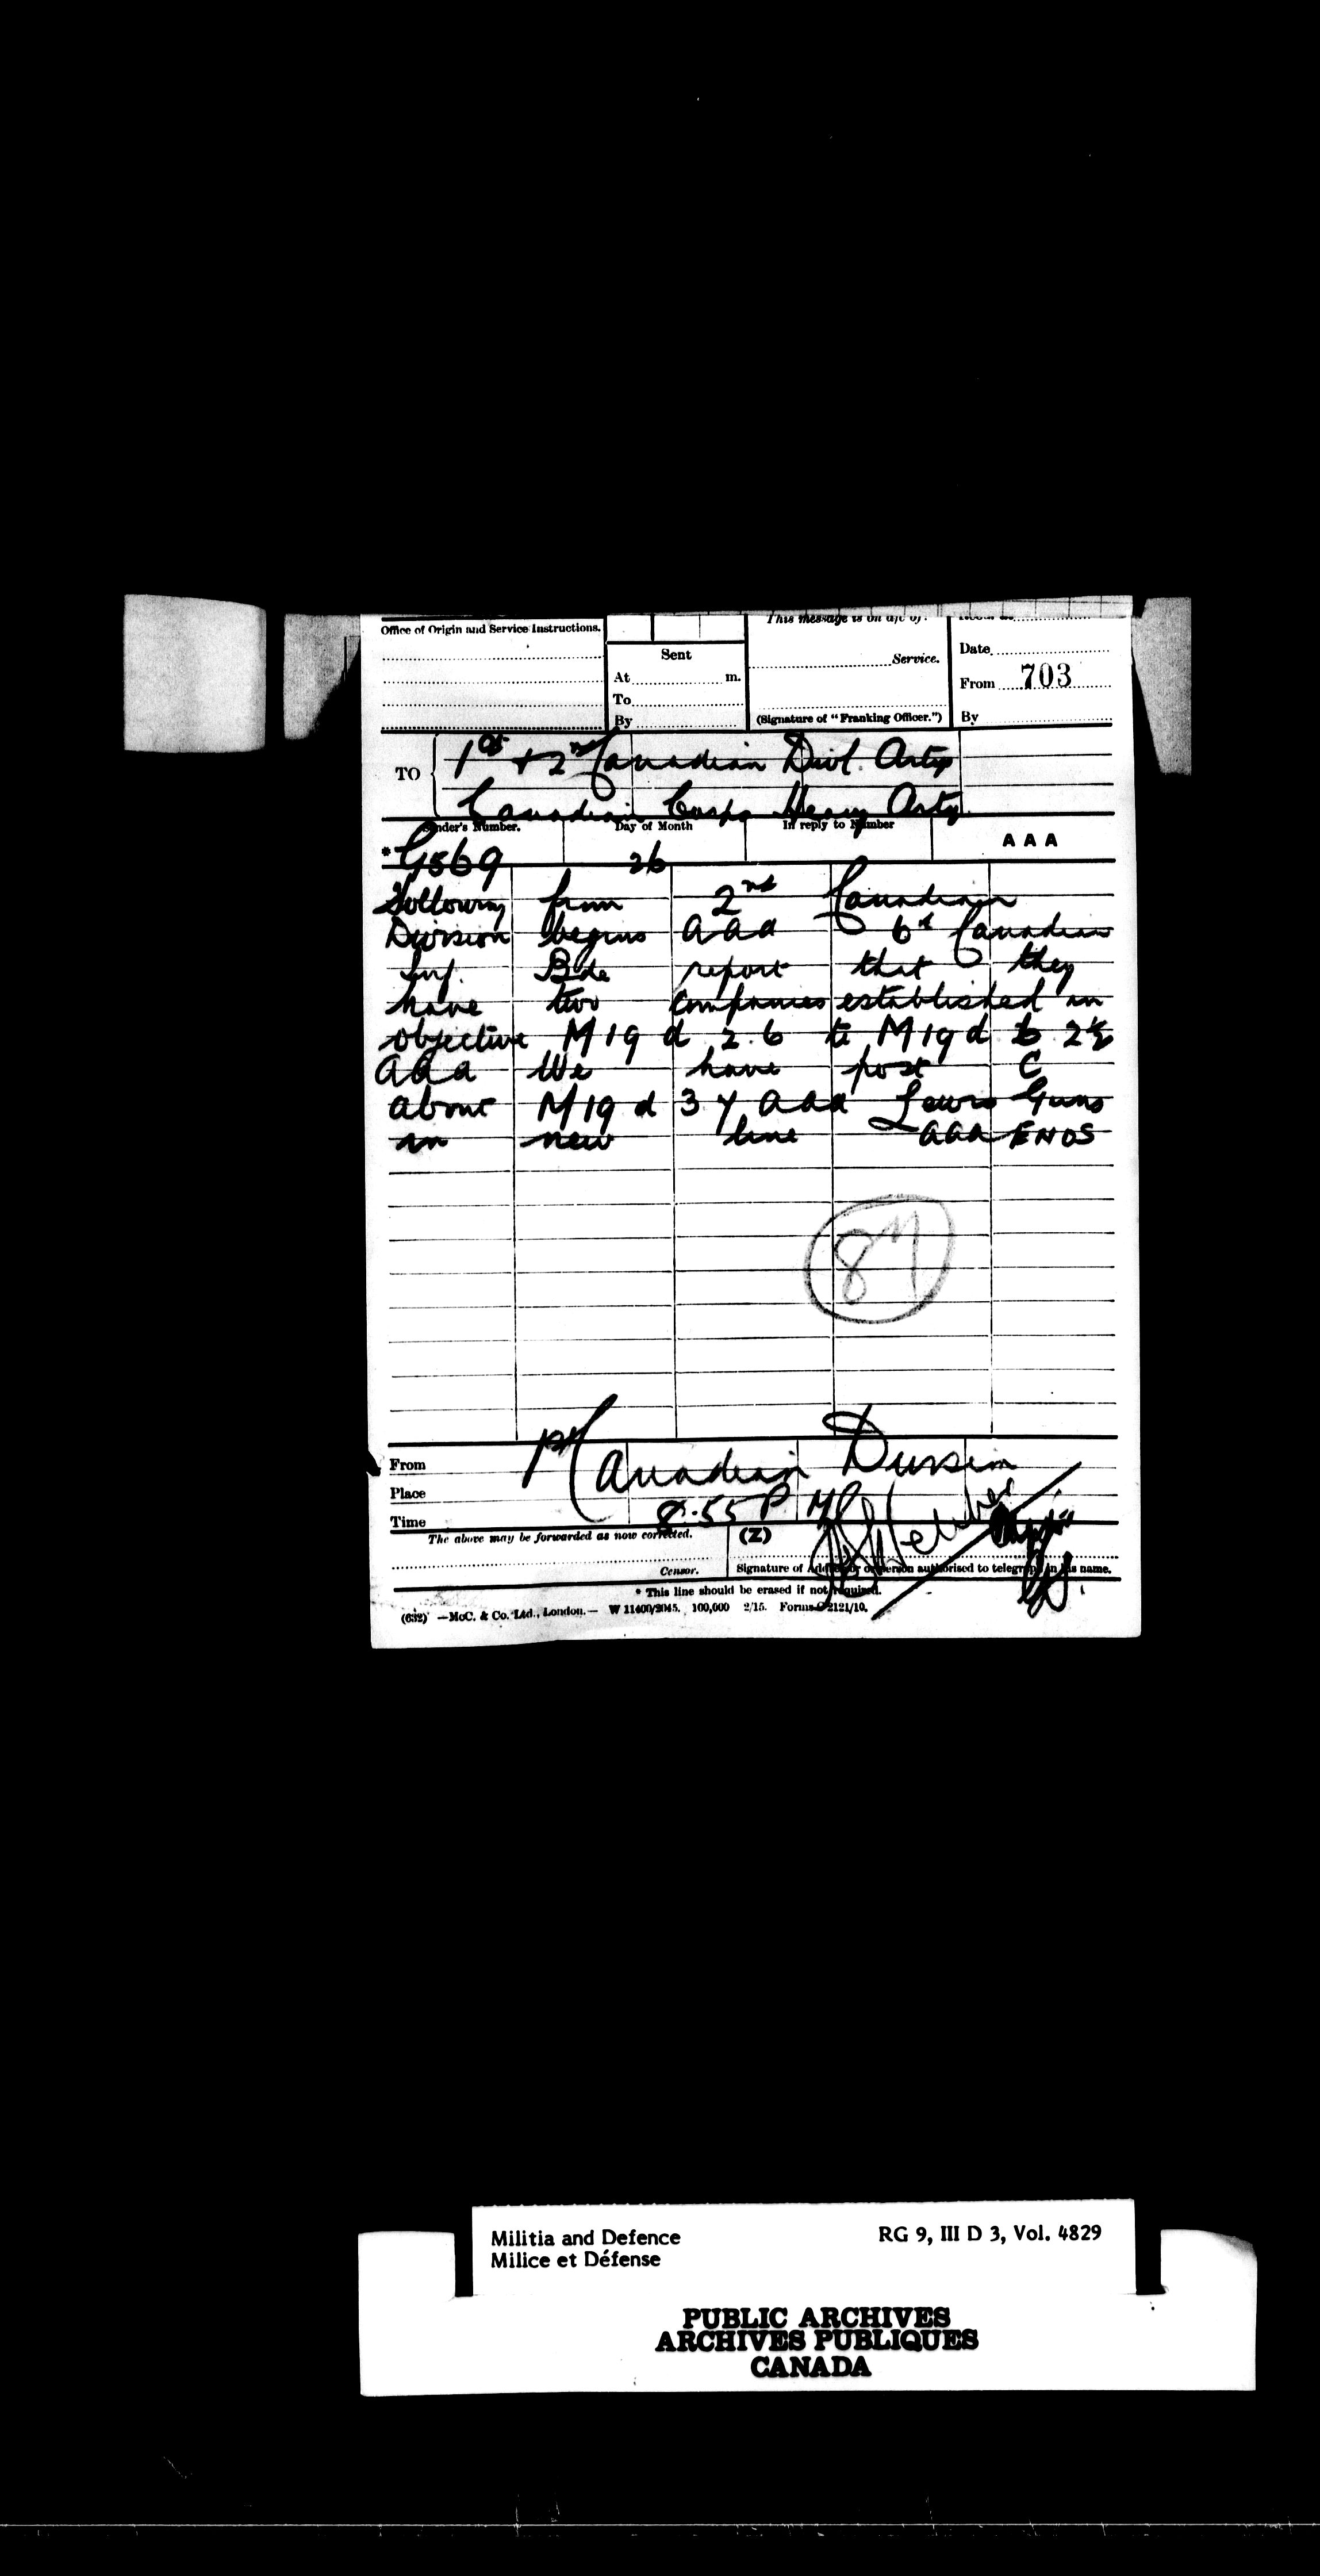 Office of Origin and Service Instructions.
Sent
At m.
To
By
This message is on a/c of:
Service.
(Signature of "Franking Officer.")
Date
From 703
By
TO
1st + 2nd Canadian Divl. Arty
Canadian Corps Heavy Arty.
Sender's Number. Day of Month In reply to Number AAA
* G569 26
Following from 2nd Canadian
Division begins aaa 6th Canadian
Inf. Bde report that they
have two companies established in
objective M19 d 2.6 to M19 d 2½
aaa We have post C
about M19 d 3 7 aaa Lewis Guns
in new line aaa ENDS
87
From 1st Canadian Division
Place
Time 8.55 P M
The above may be forwarded as now corrected. (Z)
Censor. Signature of Addressor or person authorised to telegraph in his name.
* This line should be erased if not required.
(632) —McC. & Co. Ltd., London.— W 11400/2045. 100,000 2/15. Forms C2121/10.
Militia and Defence RG 9, III D 3, Vol. 4829
Milice et Défense
PUBLIC ARCHIVES
ARCHIVES PUBLIQUES
CANADA